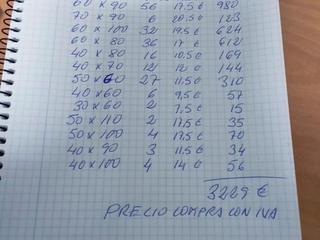 60 x 90 56 17.5 € 980
70 x 90 6 20.5 € 123
60 x 100 32 19.5 € 624
60 x 80 36 17 € 612
40 x 80 16 10.5 € 169
40 x 70 12 12 € 144
50 x 60 27 11.5 € 310
40 x 60 6 9.5 € 57
30 x 60 2 7.5 € 15
50 x 110 2 17.5 € 35
50 x 100 4 17.5 € 70
40 x 90 3 11.5 € 34
40 x 100 4 14 € 56
3229 €
PRECIO COMPRA CON IVA